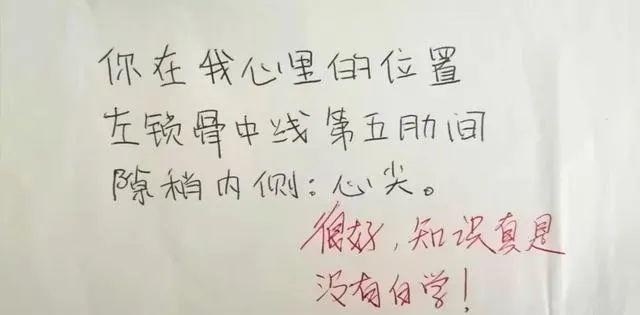 你在我心里的位置
左锁骨中线第五肋间
隙稍内侧:心尖。
很好,知识真是
没有白学!